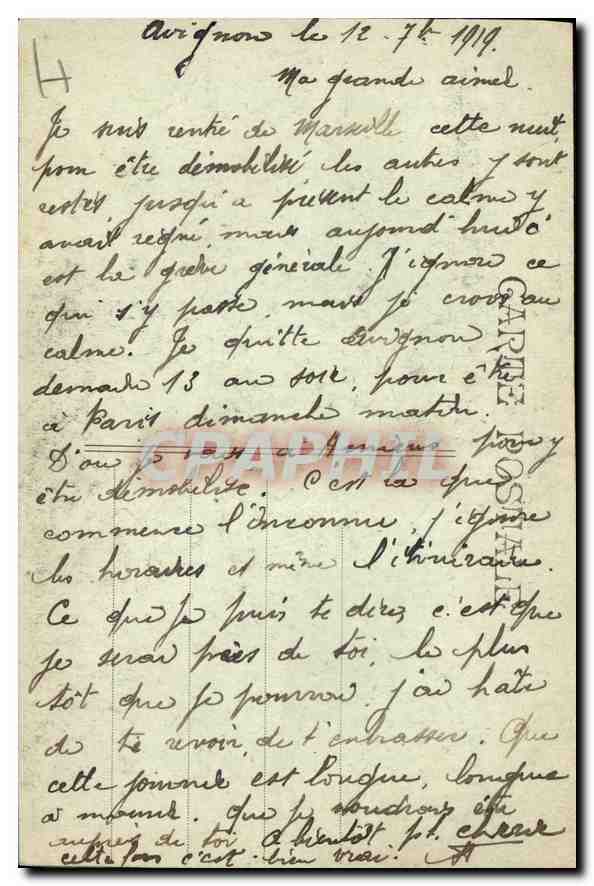 Avignon le 12 - 7bre 1919.
Ma grande aimée
Je suis rentré de Marseille cette nuit,
pour être démobilisé, les autres y sont
restés, jusqu'à présent le calme y
avait régné, mais aujourd'hui c'
est la grève générale. J'ignore ce
qui s'y passe, mais je crois au
calme. Je quitte Avignon
demain 13 au soir, pour être
à Paris dimanche matin.
D'où je vais à pour y
être démobilisé. C'est là que
commence l'inconnu, j'ignore
les horaires et même l'itinéraire.
Ce que je puis te dire, c'est que
je serai près de toi, le plus
tôt que je pourrai. j'ai hâte
de te revoir, de t'embrasser. Que
cette journée est longue, longue
à mourir. que je voudrais être
auprès de toi à bientôt pt.
cette fois c'est bien vrai.
CARTE POSTALE
CAPHIL